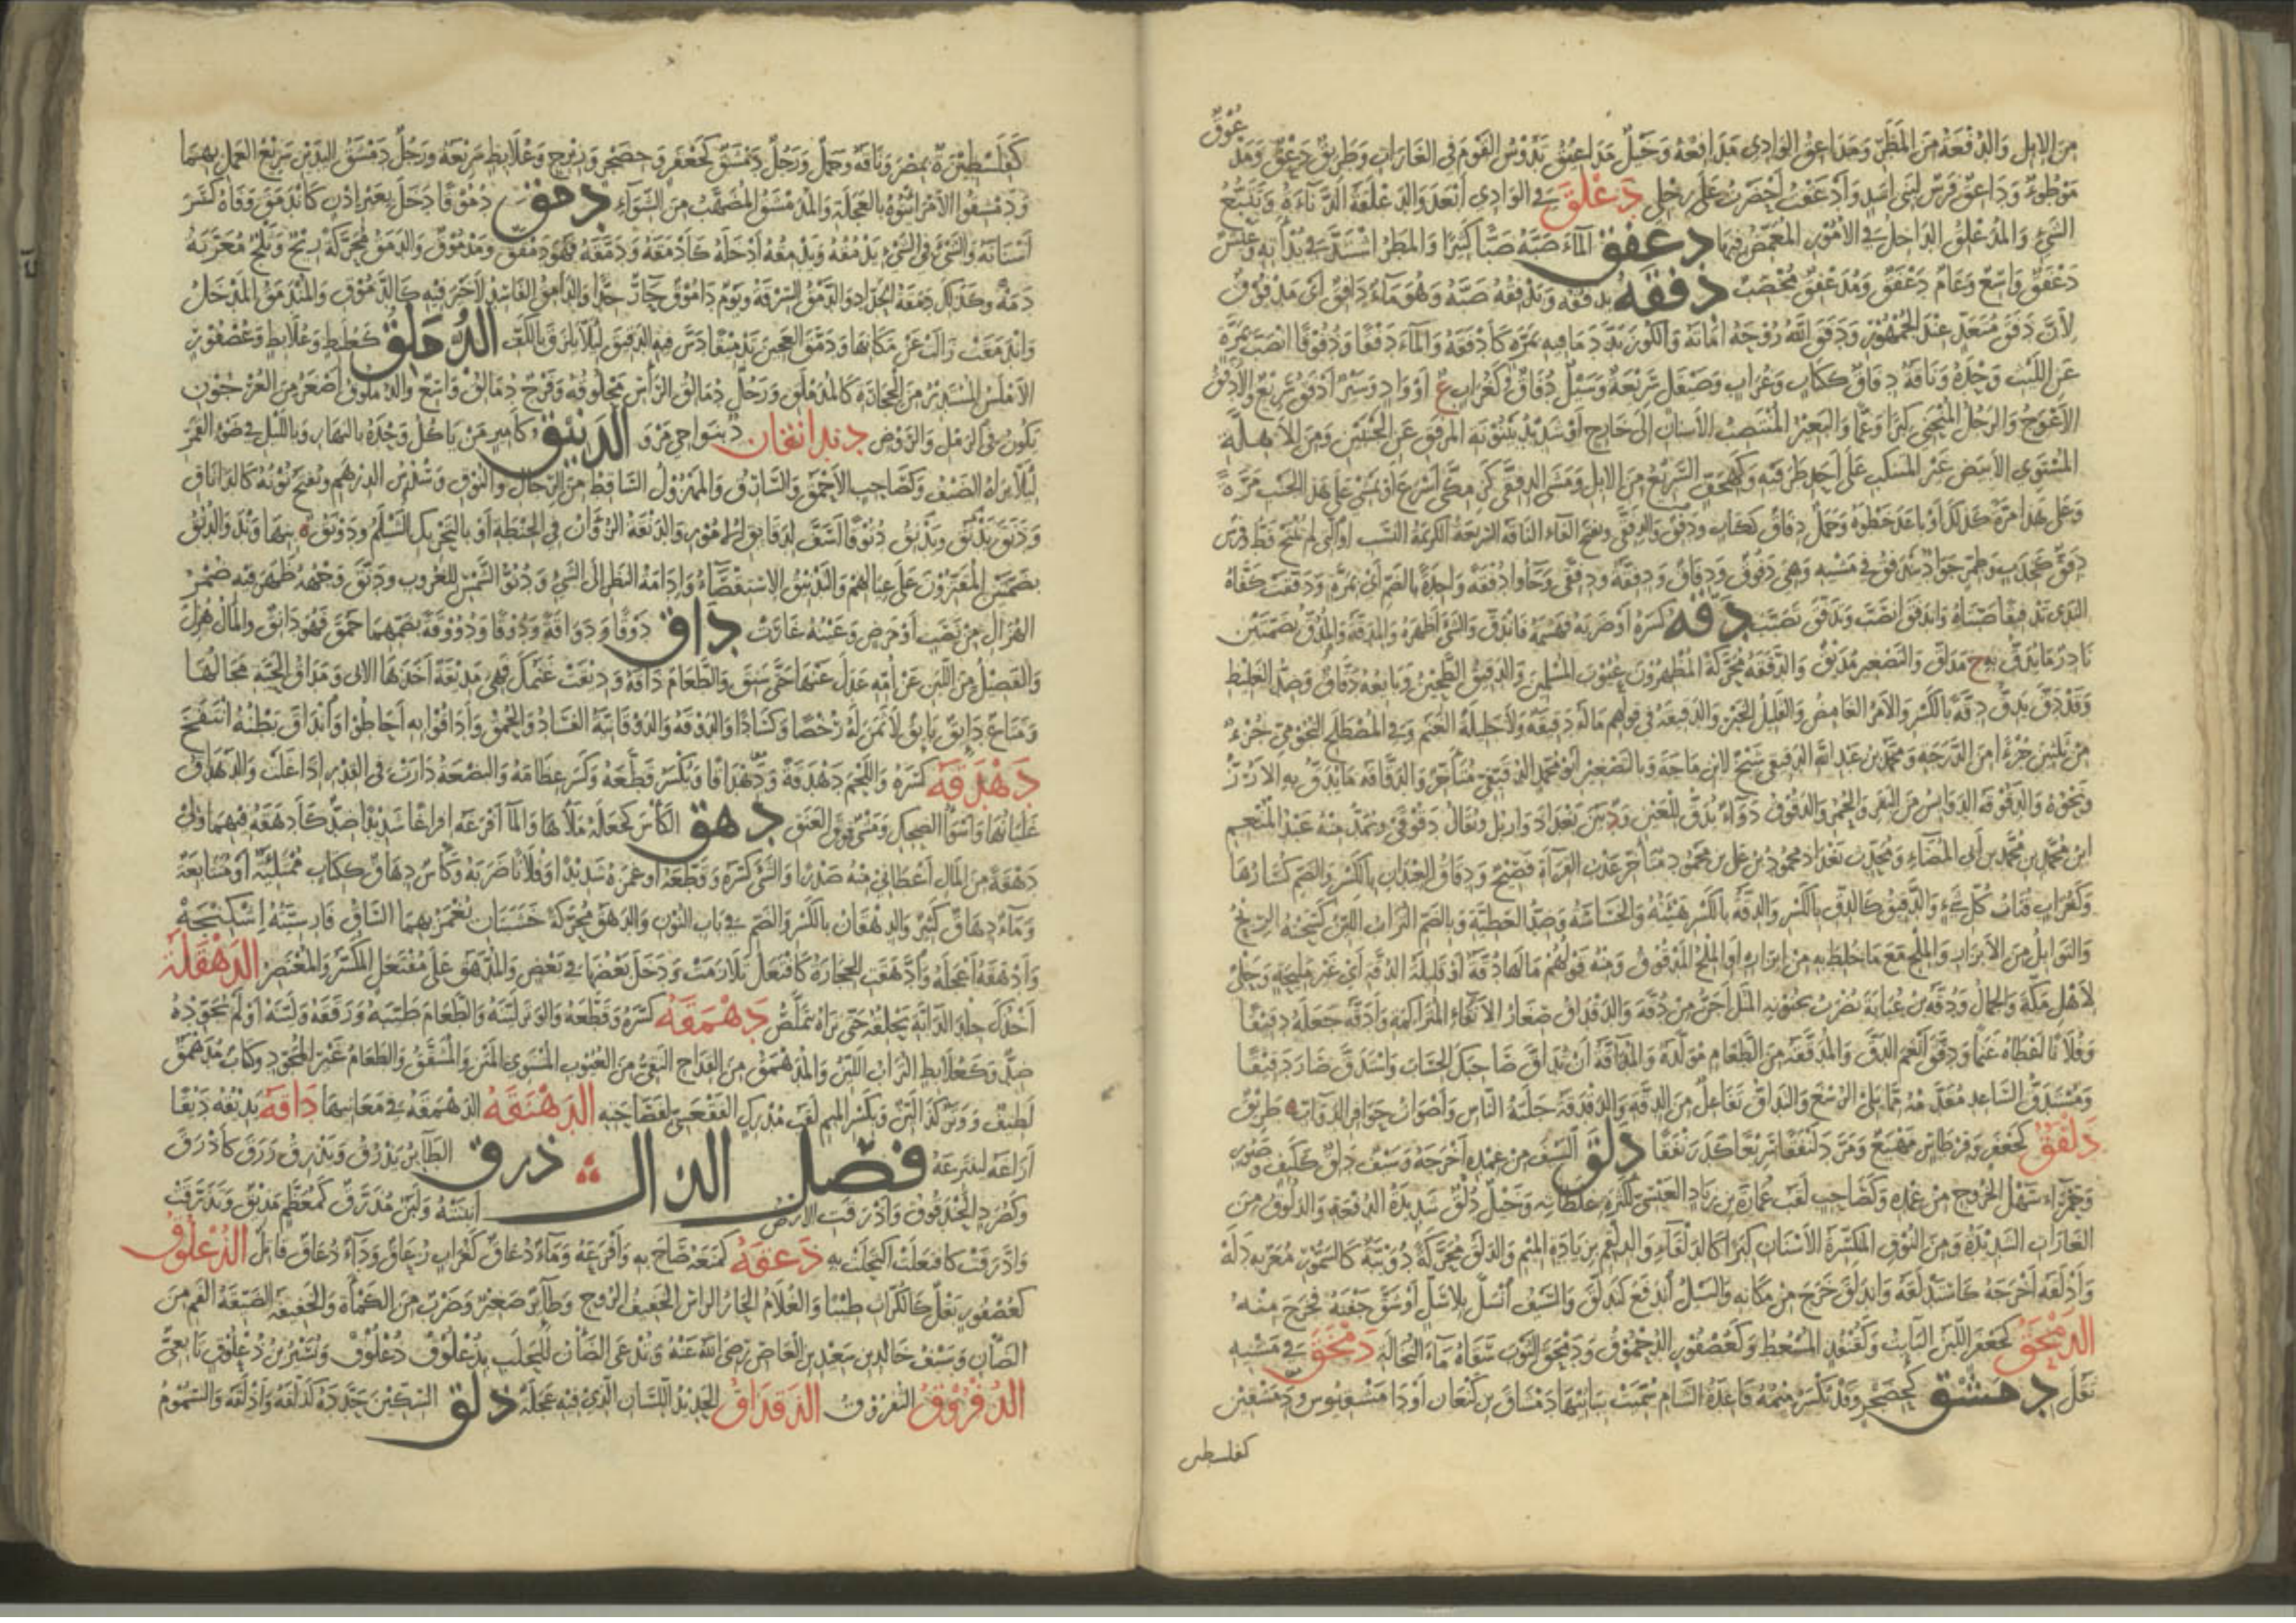 من الابل والدفعة من المطر ومداعق الوادي مدافعه وخيل مداعيق يدوس القوم في الغارات وطريق دعق ومدعوق
موطوء وداعق فرس لبني اسد وادعقت احضرت على رجلي دعلق في الوادي ابعد والدعلقة الدناءة وتتبع
الشيء والمدعلق الداخل في الامور المغمض فيها دغفق الماء صبه صبا كثيرا والمطر اشتد في بدأته وعيش
دغفق واسع وعام دغفق ومدغفق مخصب دفقه يدفقه ويدفقه صبه وهو ماء دافق اي مدفوق
لان دفق متعد عند الجمهور ودفق الله روحه اماته والكوز بدد ما فيه بمرة كادفقه والماء دفقا ودفوقا انصب بمرة
عن الليث وحده وناقة دفاق ككتاب وغراب وصيقل سريعة وسيل دفاق كغراب ع او واد وسير ادفق سريع والادفق
الاعوج والرجل المنحني كبرا وغما والبعير المنتصب الاسنان الى خارج او شديد بينونة المرفق عن الجنبين ومن الاهلة
المستوي الابيض غير المنكب على احد طرفيه وكهجف السريع من الابل ومشى الدفقى كزمكى اسرع او تمشى على هذا الجنب مرة
وعلى هذا مرة كذلك او باعد خطوه وجمل دفاق ككتاب ودفق والدفقى وتفتح الفاء الناقة السريعة الكريمة النسب او التي لم تنتج قط وفرس
دفق كخدب وطمر جواد يتدفق في مشيه وهي دفوق ودفاق ودفقة ودفقى وجاوا دفقة واحدة بالضم اي بمرة ودفقت كفاه
الندى تدفيقا صبتاه واندفق انصب وتدفق تصبب دقه كسره او ضربه فهشمه فاندق والشيء اظهره والمدقة والمدق بضمتين
نادر ما يدق به ج مداق والتصغير مديق والدققة محركة المظهرون عيوب المسلمين والدقيق الطحين وبايعه دقاق وضد الغليظ
وقد دق يدق دقة بالكسر والامر الغامض والقليل الخير والدقيقة في قولهم ماله دقيقة ولا جليلة الغنم وفي المصطلح النجومي جزء
من ثلثين جزءا من الدرجة ومحمد بن عبد الله الدقيقي شيخ لابن ماجة وبالتصغير ابو محمد الدقيقي متاخر والدقاقة ما يدق به الارز
ونحوه والدقوقة الدوايس من البقر والحمر والدقوق دواء يدق للعين ود بين بغداد واربل ويقال دقوقى وتمد منه عبد المنعم
ابن محمد بن محمد بن ابي المضاء ومحدث بغداد محمود بن علي بن محمود متاخر عذب القراة فصيح ودقاق العيدان بالكسر والضم كسارها
وكغراب فتات كل شيء والدقيق كالدق بالكسر والدقة بالكسر هيئته والخساسة وضد العظيمة وبالضم التراب اللين كسحته الريح
والتوابل من الابزار والملح مع ما خلط به من ابزاره او الملح المدقوق ومنه قولهم مالها دقة او قليلة الدقة اي غير مليحة وحلى
لاهل مكة والجمال ودقة بن عباية يضرب بجنونه المثل اجن من دقة والدقداق صغار الانقاء المتراكمة وادقه جعله دقيقا
وفلانا اعطاه غنما ودقق انعم الدق والمدققة من الطعام مولدة والمداقة ان تداق صاحبك الحساب واستدق صار دقيقا
ومستدق الساعد مقدمه مما يلي الرسغ والتداق تفاعل من الدقة والدقدقة جلبة الناس واصوات حوافر الدواب طريق
دلفق كجعفر وقرطاس مهيع ومر دلنفقا سريعا كدرنفقا دلق السيف من غمده اخرجه وسيف دلق ككتف وصبور
وحمراء سهل الخروج من غمده وكصاحب لقب عمارة بن زياد العبسي لكثرة غلطاته وخيل دلق شديدة الدفعة والدلوق من
الغارات الشديدة ومن النوق المتكسرة الاسنان كبرا كالدلقاء والدلقم بزيادة الميم والدلق محركة دويبة كالسمور معربه دله
وادلقه اخرجه كاستدلقه واندلق خرج من مكانه والسيل اندفع كتدلق والسيف انسل بلا سل او شق جفنه فخرج منه
الدمحق كجعفر اللبن البائت وكقنفذ المسعط وكعصفور الدحموق ودمحق الثوب سقاه ماء النخالة دمخق في مشيه
ثقل دمشق كحضجر وقد تكسر ميمه قاعدة الشام سميت ببانيها دمشاق بن كنعان او دامشقيوس ودمشقين
كفلسطين
كفلسطين ة بمصر وناقة وجمل ورجل دمشق كجعفر وحضجر وزبرج وعلابط سريعة ورجل دمشق اليدين سريع العمل بهما
ودمشقوا الامر اتوه بالعجلة والمدمشق المضهب من الشواء دمق دموقا دخل بغير اذن كاندمق وفاه كسر
اسنانه والشيء في الشيء يدمقه ويدمقه ادخله كادمقه ودمقه فهو دمقق ومدموق والدمق محركة ريح وثلج معربه
دمة وكذلك دمقة الحداد والدمق السرقة ويوم داموق حار جدا والدامق الفاسد لا خير فيه كالدموق والمندمق المدخل
واندمقت زالت عن مكانها ودمق العجين تدميقا دس فيه الدقيق ليلا يلزق بالكف الدملق كعلبط وعلابط وعصفور
الاملس المستدير من الحجارة كالمدملق ورجل دمالق الراس محلوقه وفرج دمالق واسع والدملوق اصغر من العرجون
يكون في الرمل والروض دندانقان د بنواحي مرو الدنيق كامير من ياكل وحده بالنهار وبالليل في ضوء القمر
ليلا يراه الضيف وكصاحب الاحمق والسارق والمهزول الساقط من الرجال والنوق وسدس الدرهم وتفتح نونه كالداناق
ودنق يدنق ويدنق دنوقا اسف لدقايق الامور والدنقة الزوان في الحنطة او بالتحريك الشيلم ودونق ه بنهاوند والدنق
بضمتين المقترون على عيالهم والتدنيق الاستقصاء وادامة النظر الى الشيء ودنو الشمس للغروب ودنق وجهه ظهر فيه ضمر
الهزال من نصب او مرض وعينه غارت داق دوقا ودواقة ودوقا ودووقة بضمهما حمق فهو دايق والمال هزل
والفصيل من اللبن عن امه عدل عنها حتى سنق والطعام ذاقه وديقت غنمك فهي مديقة اخذها الابى ومداق الحية مجالها
ومتاع دايق بايق لا ثمن له رخصا وكسادا والدوقة والدوقانية الفساد والحمق واداقوا به احاطوا وانداق بطنه انتفخ
دهدقه كسره واللحم دهدقة ودهداقا وتكسر قطعه وكسر عظامه والبضعة دارت في القدر اذا غلت والدهداق
غليانها واسوا الضحك ومشي فوق العنق دهق الكاس كجعله ملاها والما افرغه افراغا شديدا ضد كادهقه فيهما ولي
دهقة من المال اعطاني منه صدرا والشيء كسره وقطعه او غمزه شديدا وفلانا ضربه وكاس دهاق ككتاب ممتلئة او متتابعة
وماء دهاق كثير والدهقان بالكسر والضم في باب النون والدهق محركة خشبتان يغمز بهما الساق فارسيته اشكنجه
وادهقه اعجله وادهقت الحجارة كافتعل تلازمت ودخل بعضها في بعض والمدهق على مفتعل المكسر والمعتصر الدهقلة
اخذك جلد الدابة يحلقه حتى تراه يتملص دهمقه كسره وقطعه والوتر لينه والطعام طيبه ورققه ولينه او لم يجوده
ضد وكعلابط التراب اللين والمدهمق من القداح النقي من العيوب المستوي المتن والمشقق والطعام غير المجود وكتاب مدهمق
لطيف ووتر كذا لين وبكسر الميم لقب مدرك الفقعسي لفصاحته الدهنقة الدهمقة في معانيها داقه يديقه ديقا
اراغه لينزعه فصل الذال ذرق الطاير يذرق ويذرق ذرق كاذرق
وكصرد الحندقوق واذرقت الارض انبتته ولبن مذرق كمعظم مذيق وتذرقت
واذرقت كافتعلت اكتحلت به ذعقه كمنعه صاح به وافزعه وماء ذعاق كغراب زعاق وداء ذعاق قاتل الذعلوق
كعصفور بقل كالكراث طيبا والغلام الحار الراس الخفيف الروح وطائر صغير وضرب من الكماة والخفيفة الضيقة الفم من
الضان وسيف خالد بن سعيد بن العاص رضي الله عنه وتدعى الضان للحلب بذعلوق ذعلوق وبشير بن ذعلوق تابعي
الذفروق الثفروق الذقذاق الحديد اللسان الذي فيه عجلة ذلق السكين حدده كذلقه واذلقه والسموم